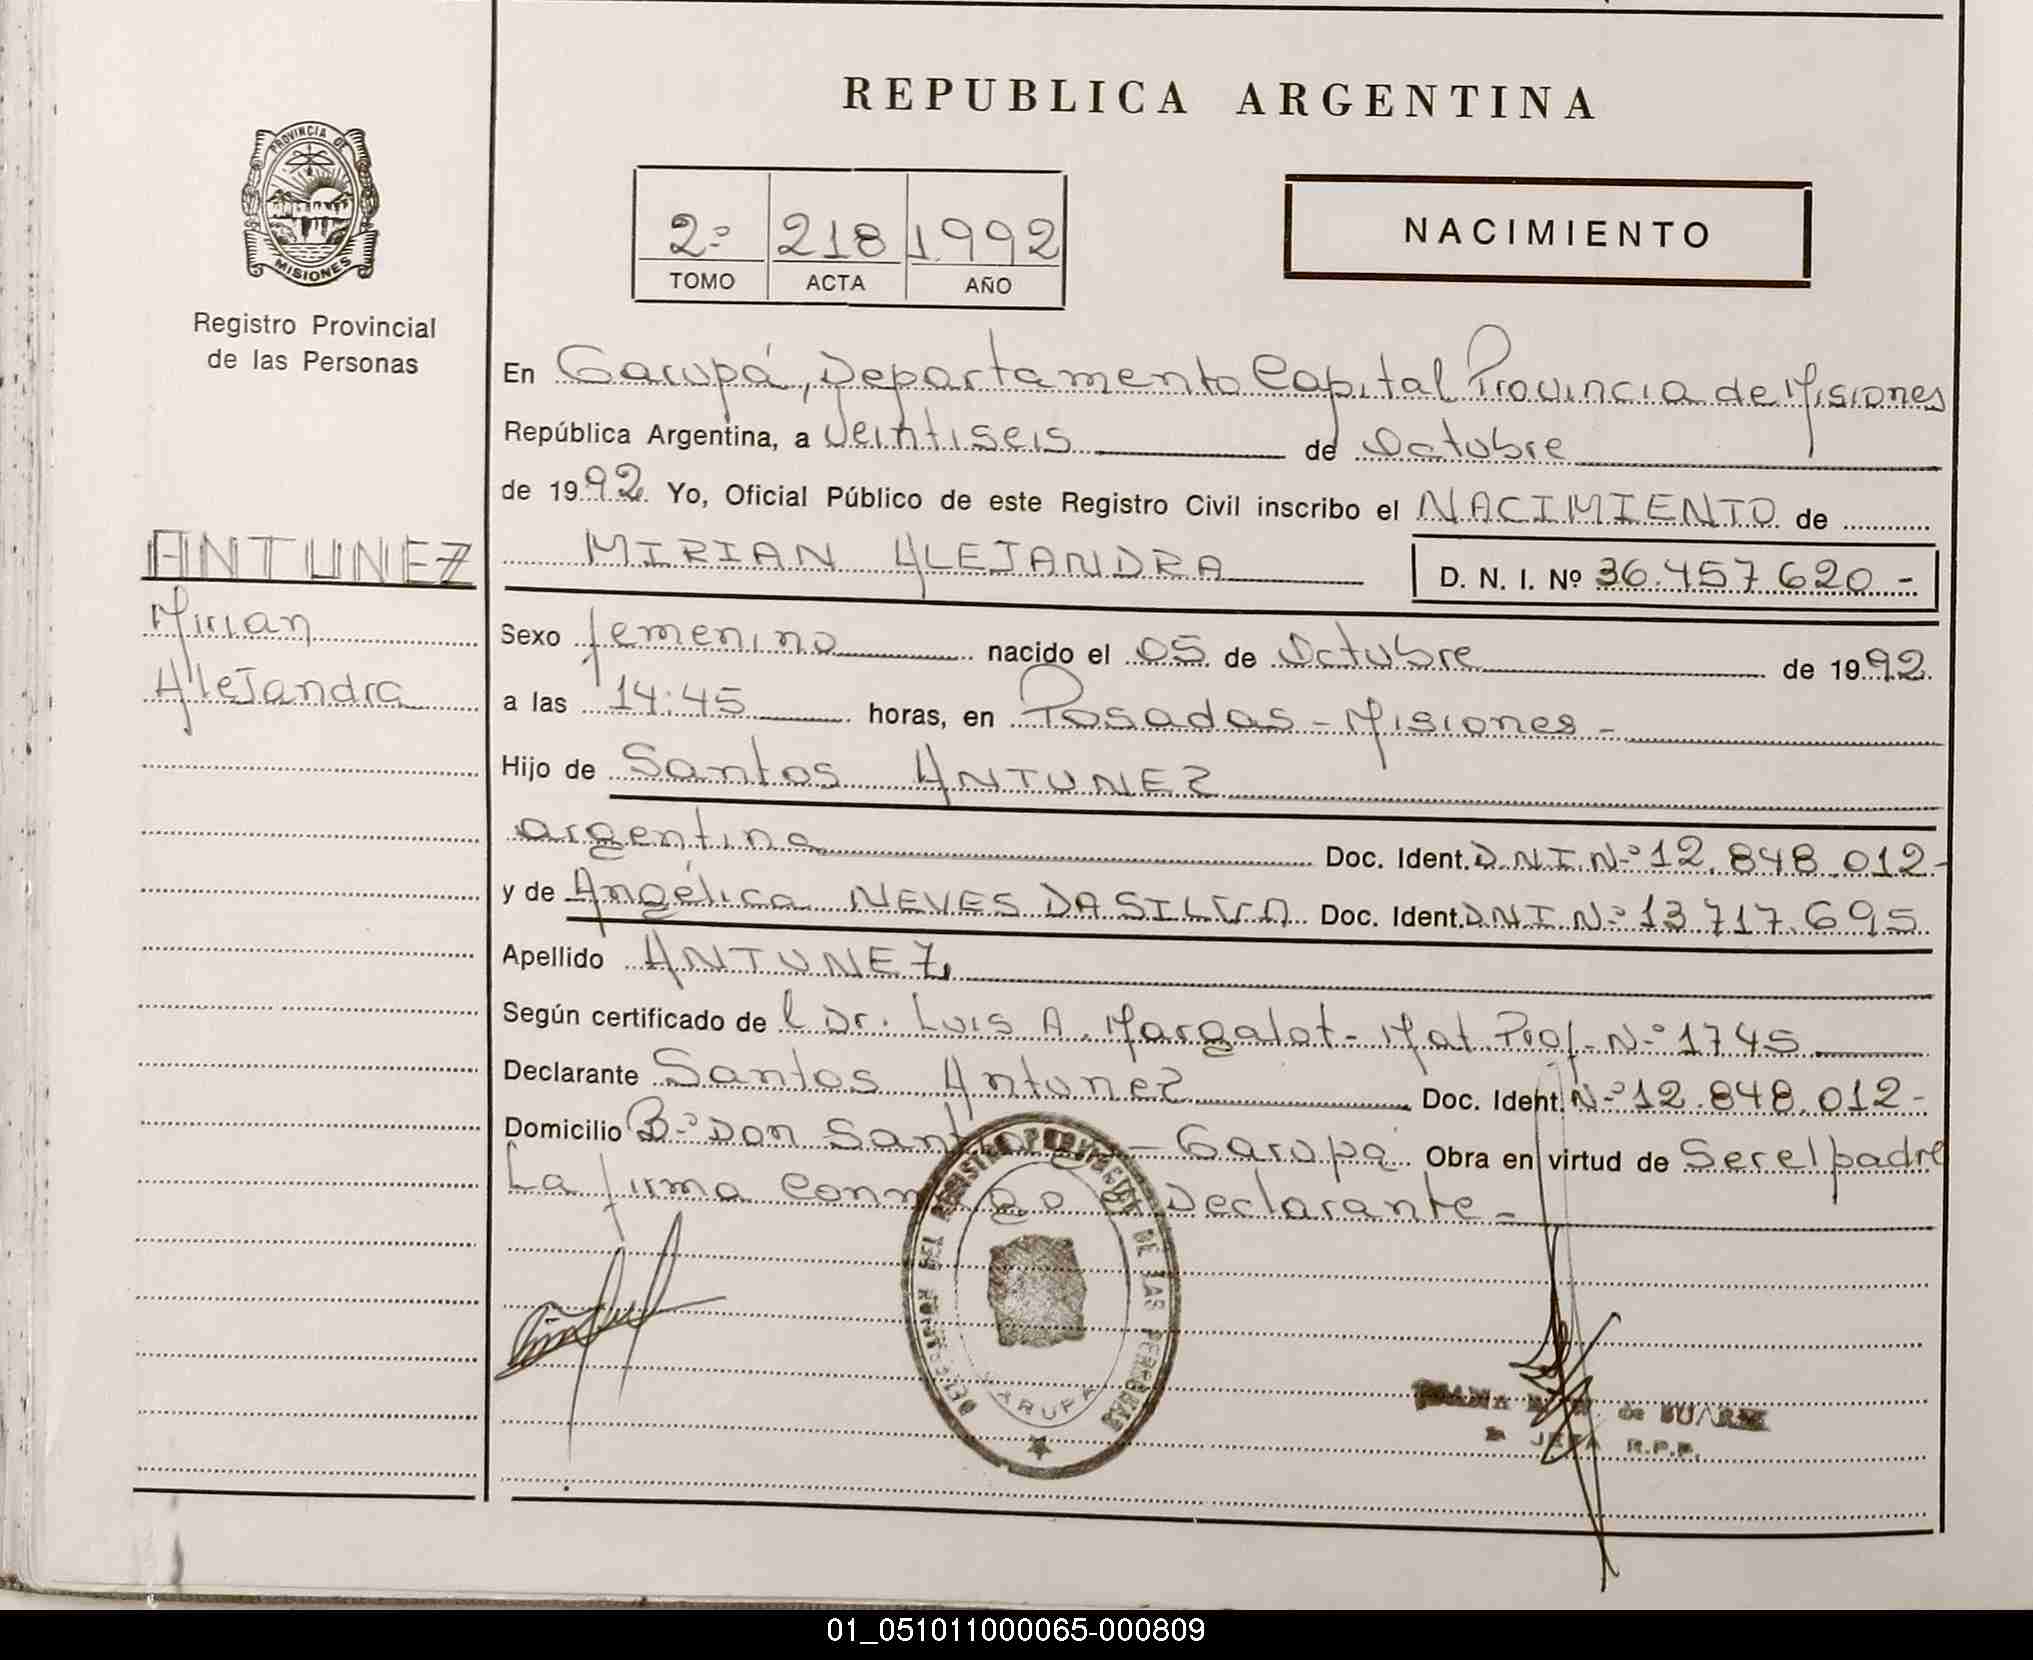 REPUBLICA ARGENTINA
PROVINCIA DE
MISIONES
Registro Provincial
de las Personas
2º 218 1992
TOMO ACTA AÑO
NACIMIENTO
En Garupá, Departamento Capital Provincia de Misiones
República Argentina, a Veintiseis de Octubre
de 1992. Yo, Oficial Público de este Registro Civil inscribo el NACIMIENTO de
MIRIAN ALEJANDRA D. N. I. Nº 36.457.620.-
ANTUNEZ
Mirian
Alejandra
Sexo femenino nacido el 05 de Octubre de 1992.
a las 14:45 horas, en Posadas - Misiones -
Hijo de Santos ANTUNEZ
argentina Doc. Ident. D.N.I.Nº 12.848.012-
y de Angélica NEVES DA SILVA Doc. Ident. DNI Nº 13.717.695
Apellido ANTUNEZ
Según certificado de l Dr. Luis A. Margalot - Mat. Prof. Nº 1745
Declarante Santos Antunez Doc. Ident. Nº 12.848.012-
Domicilio Bº Don Santiago - Garupá Obra en virtud de Ser el padre
La firma conmigo el Declarante -
DEL REGISTRO PROVINCIAL DE LAS PERSONAS
GARUPA
de SUAREZ
JEFA R.P.P.
01_051011000065-000809